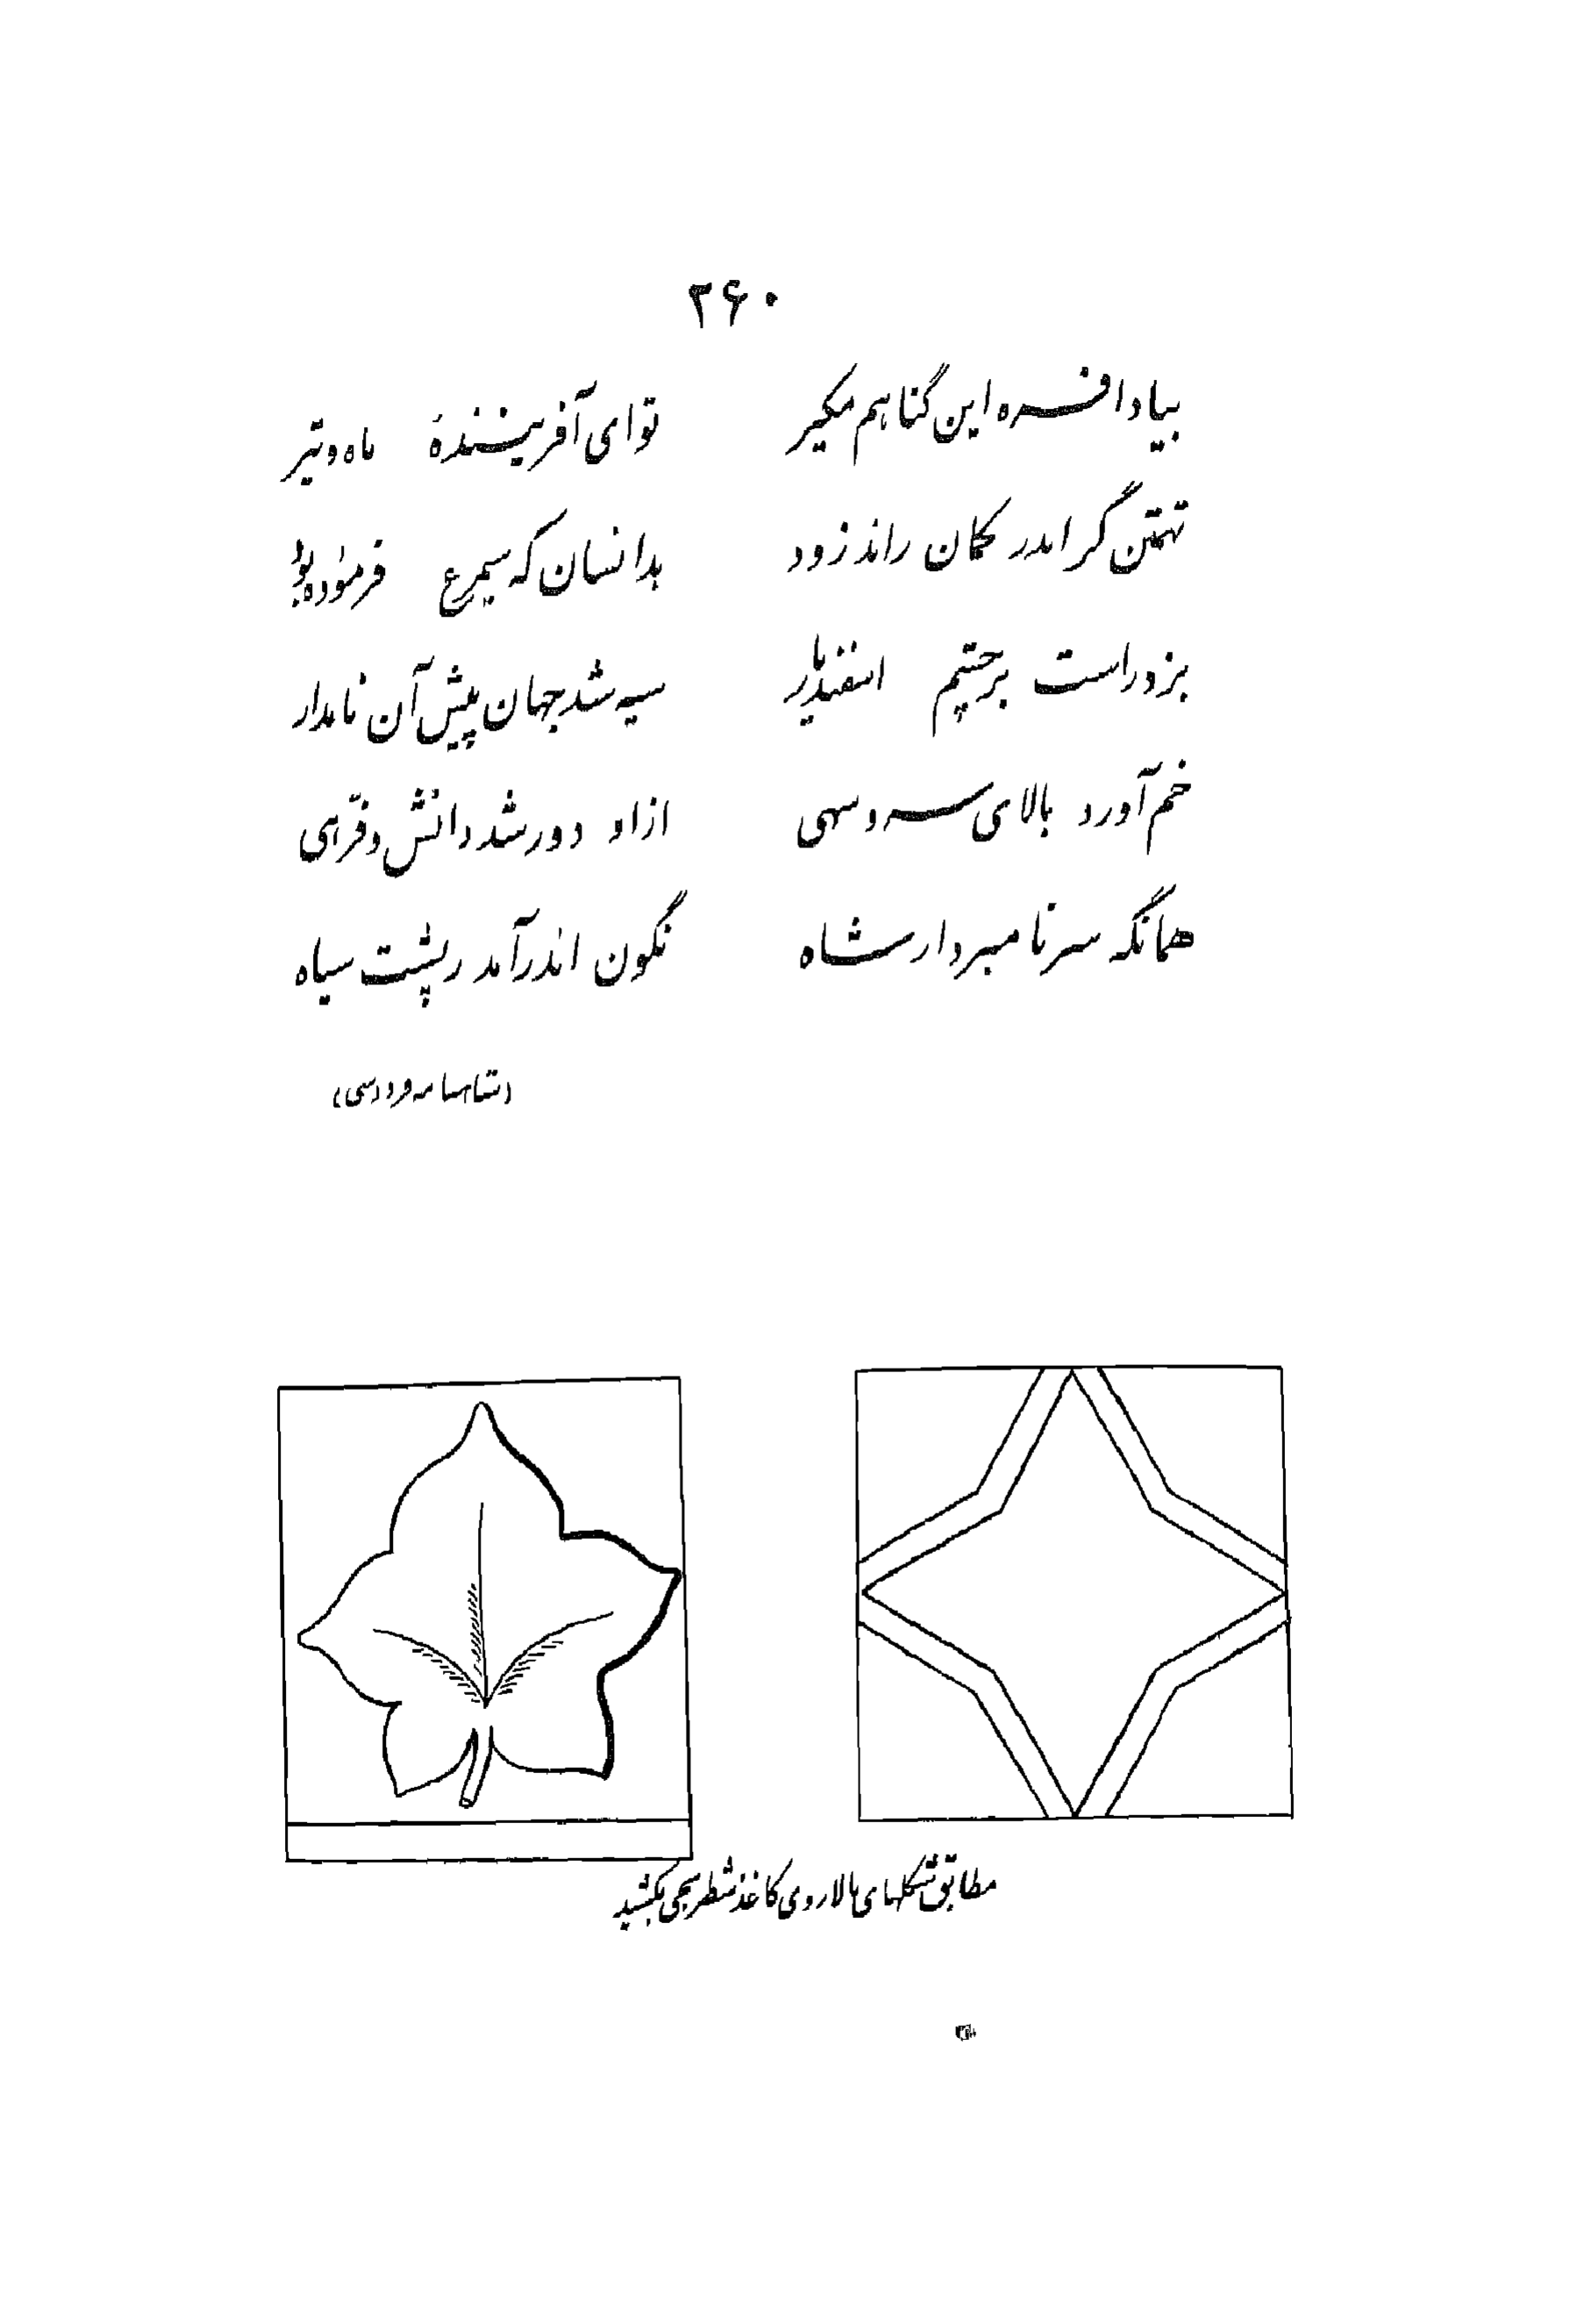 ۲۶۰
بپاد افره این گناهم مگیر توای آفرینندهٔ ماه و تیر
تهمتن گز اندر کمان راند زود بدانسان که سیمرغ فرموده بود
بزد راست بر چشم اسفندیار سیه شد جهان پیش آن نامدار
خم آورد بالای سرو سهی ازاو دور شد دانش و فرّهی
همانگه سر نامبردار شاه نگون اندر آمد ز پشت سیاه
(شاهنامه فردوسی)
مطابق شکلهای بالا روی کاغذ شطرنجی بکشید